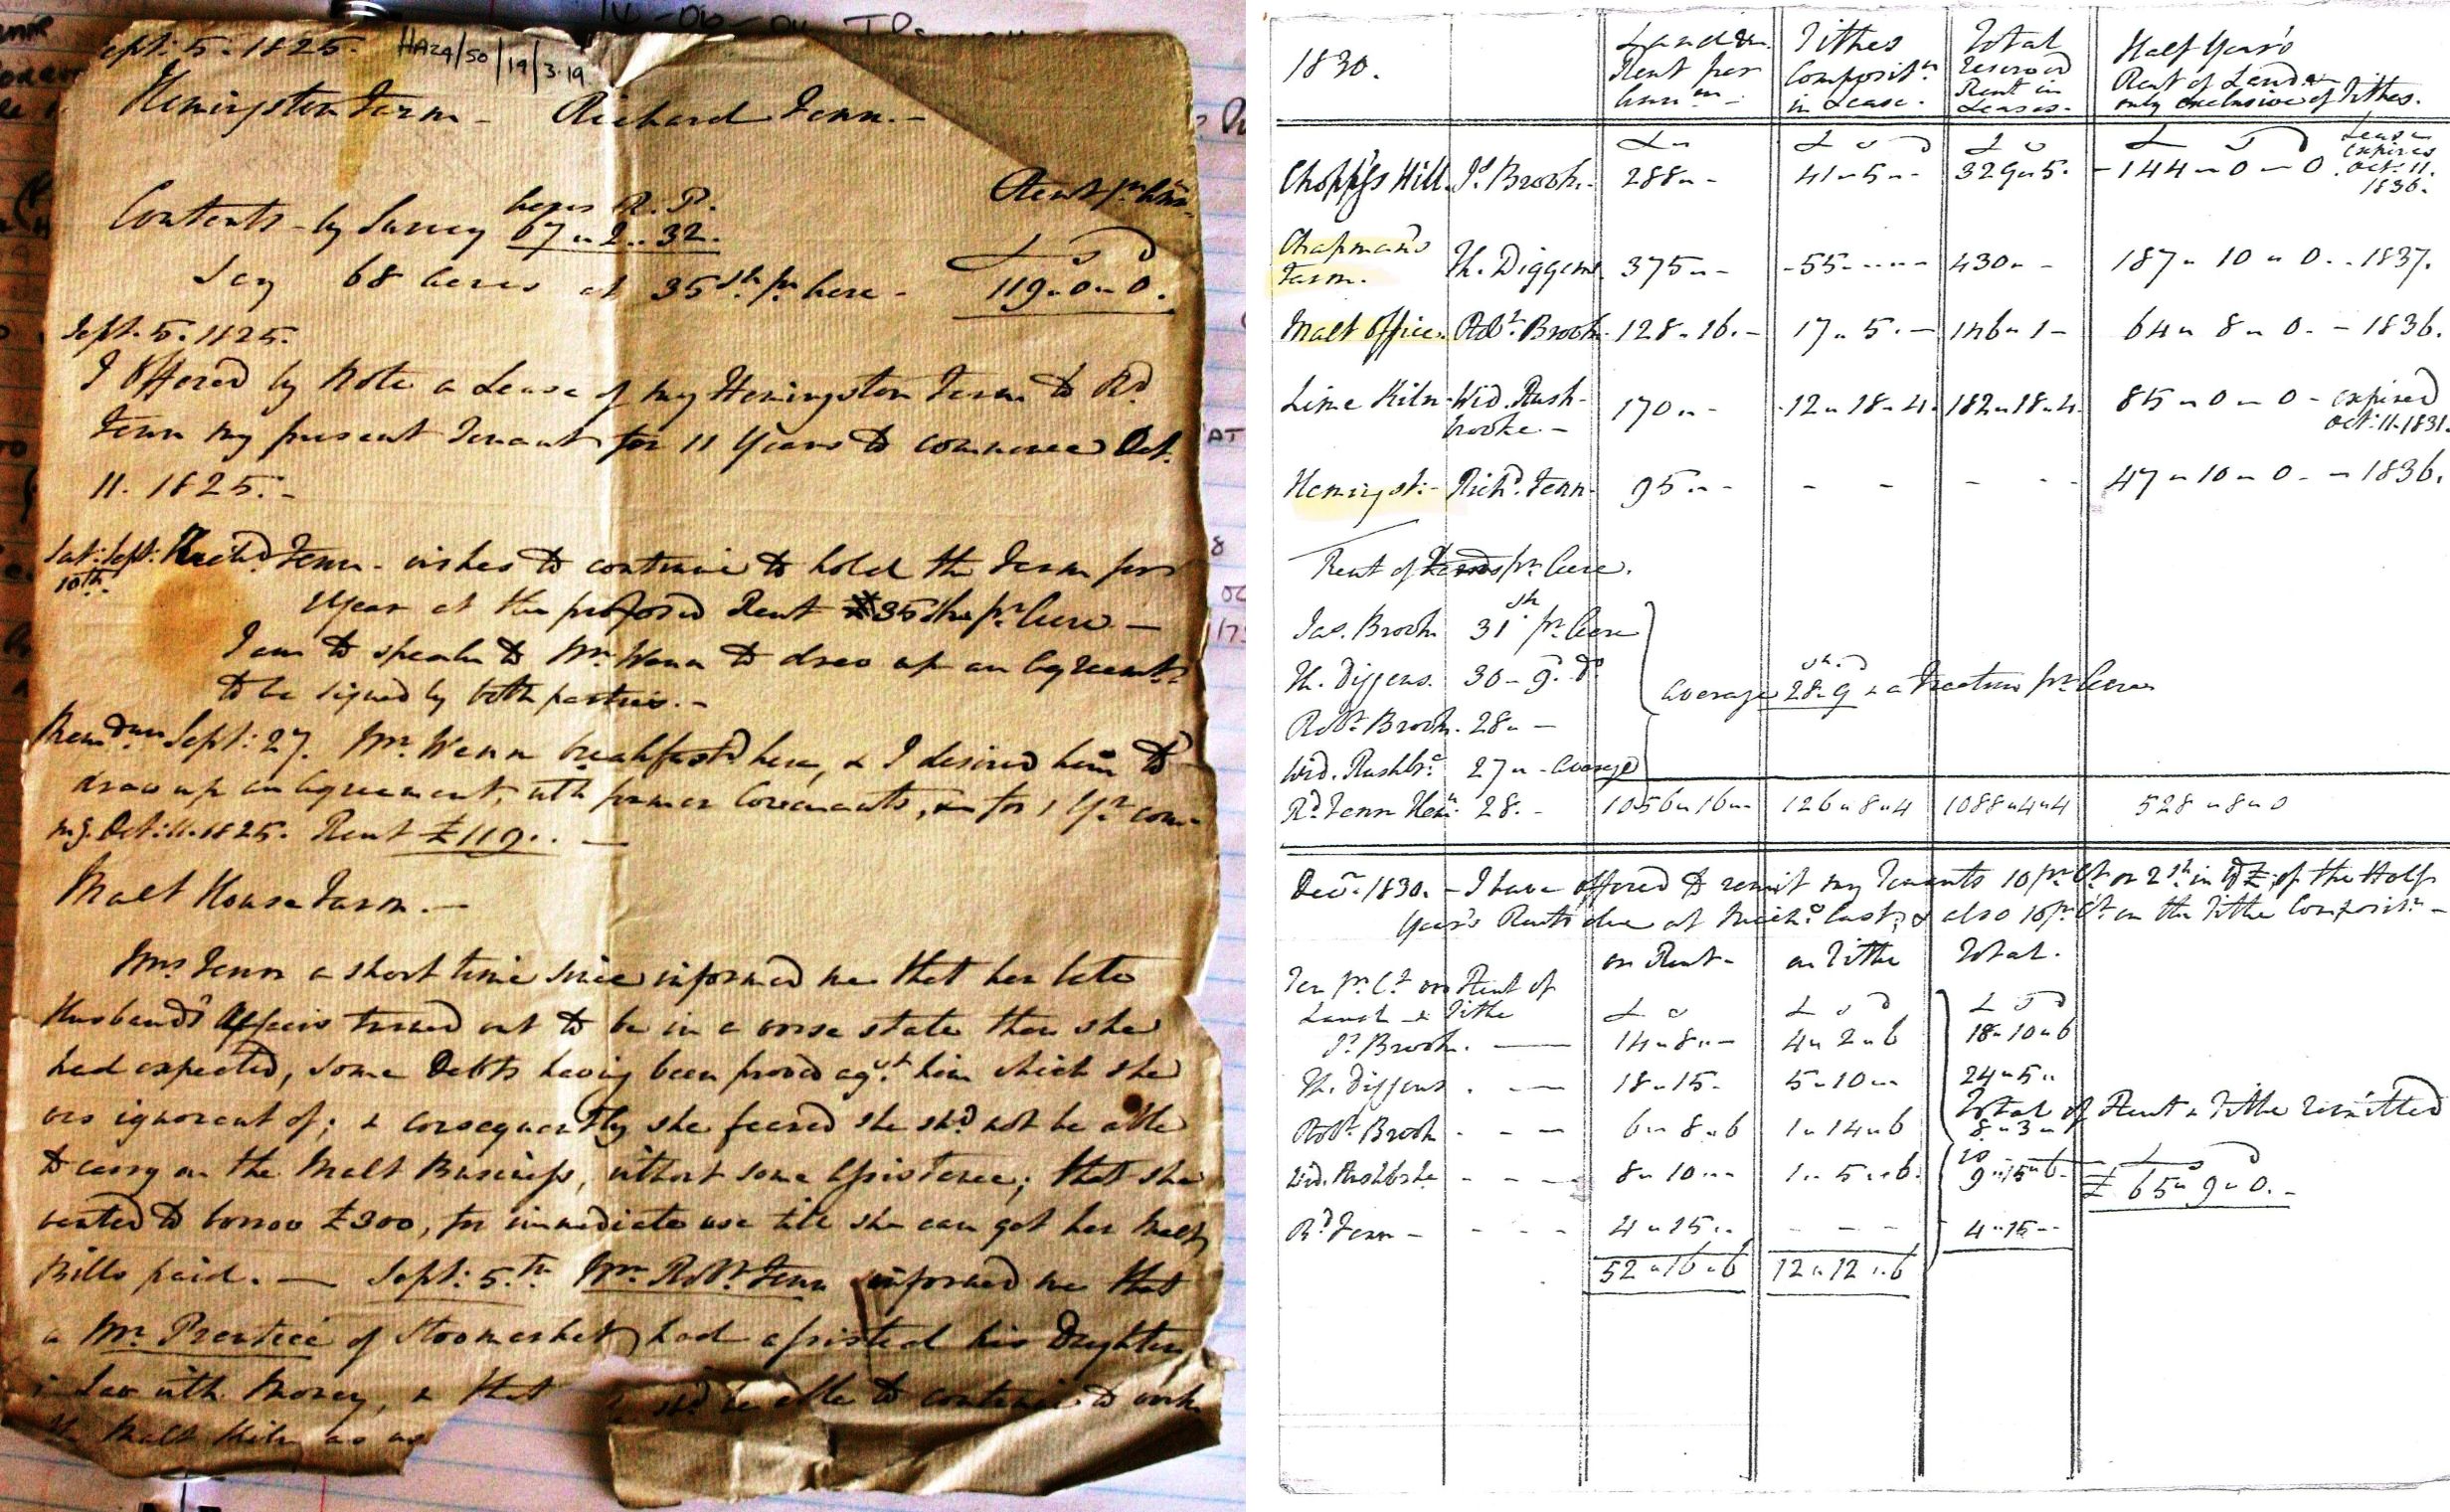 Sept: 5: 1825. HA24/50/19/3.19
Hemingston Farm - Richard Fenn. -
Rent pr. Ann:
Acres R. P.
Contents - by Survey 67 " 2 " 32.
£ s D
Say 68 Acres at 35 sh. pr. Acre - 119 " 0 " 0.
Sept. 5. 1825.
I offered by Note a Lease of my Hemingston Farm to Rd.
Fenn my present Tenant for 11 Years to commence Oct.
11. 1825. -
Sat: Sept: 10th. Richd. Fenn - wishes to continue to hold the Farm per
Year at the proposed Rent 35 shs pr. Acre -
I am to speak to Mr. Wenn to draw up an Agreemt.
to be signed by both parties. -
Memdum Sept: 27. Mr. Wenn breakfasted here, & I desired him to
draw up an agreement, with former Covenants, for 1 Yr. com-
mg. Oct: 11. 1825. Rent £119 . . -
Malt House Farm. -
Mrs Fenn a short time since informed me that her late
Husband's Affairs turned out to be in a worse state than she
had expected, some Debts having been proved agst. him which she
was ignorant of; & consequently she feared she shd. not be able
to carry on the Malt Business, without some Assistance; that she
wanted to borrow £300, for immediate use till she can get her Malt
Bills paid. - Sept: 5th. Mr. Robt. Fenn informed me that
a Mr. Prentice of Stowmarket had assisted his Daughter
in Law with Money, & that shd. be able to continue to work
the Malt Kiln as
1830.
Land
Rent per
Annum -
Tithes
Compositn.
in Lease.
Total
reserved
Rent in
Leases.
Half Year's
Rent of Land
only exclusive of Tithes.
£ " £ s D £ s £ s D Lease expires
Chopp's Hill. Js. Brook. - 288 " - 41 " 5 " - 329 " 5. - 144 " 0 " 0. Oct. 11. 1836.
Chapman's
Farm. Th. Diggens. 375 " - - 55 - - - - 430 " - 187 " 10 " 0. - 1837.
Malt Office. Robt. Brook. 128 " 16. - 17 " 5. - 146 " 1 - 64 " 8 " 0. - 1836.
Lime Kiln - Wid. Rush-
brooke. - 170 " - 12 " 18 " 4. 182 " 18 " 4. 85 " 0 " 0 - expired
Oct: 11. 1831.
Hemingst: - Richd. Fenn - 95 " - - - - - 47 " 10 " 0 - - 1836.
Rent of pr. Acre.
Jas. Brook. 31 sh pr. Acre
Th. Diggens. 30 - 9. D.
Average 28 " 9 & a Fraction pr. Acre
Robt. Brook. 28 " -
Wid. Rushbr. 27 " - Average
Rd. Fenn Hem. 28. - 1056 " 16 " - 126 " 8 " 4 1088 " 4 " 4 528 " 8 " 0
Decr. 1830. - I have offered to remit my Tenants 10 pr. Ct. or 2 sh. in the £ of the Half
Year's Rents due at Mich: last, & also 10 pr. Ct. on the Tithe Compositn. -
on Rent - on Tithe Total.
Ten pr. Ct. on Rent of
Land & Tithe £ s £ s D £ s D
Js. Brook. - 14 " 8 " - 4 " 2 " 6 18 " 10 " 6
Th. Diggens . - 18 " 15. 5 " 10 " - 24 " 5 "
Total of Rent & Tithe remitted
Robt. Brook - - - 6 " 8 " 6 1 " 14 " 6 8 " 3 "
£ s D
Wid. Rushbrke - - - 8 " 10 " - 1 " 5 " 6. 9 " 15 " 6 - £ 65 " 9 " 0. -
Rd. Fenn - - - - 4 " 15 " - - - 4 " 15 " -
52 " 16 " 6 12 " 12 " 6